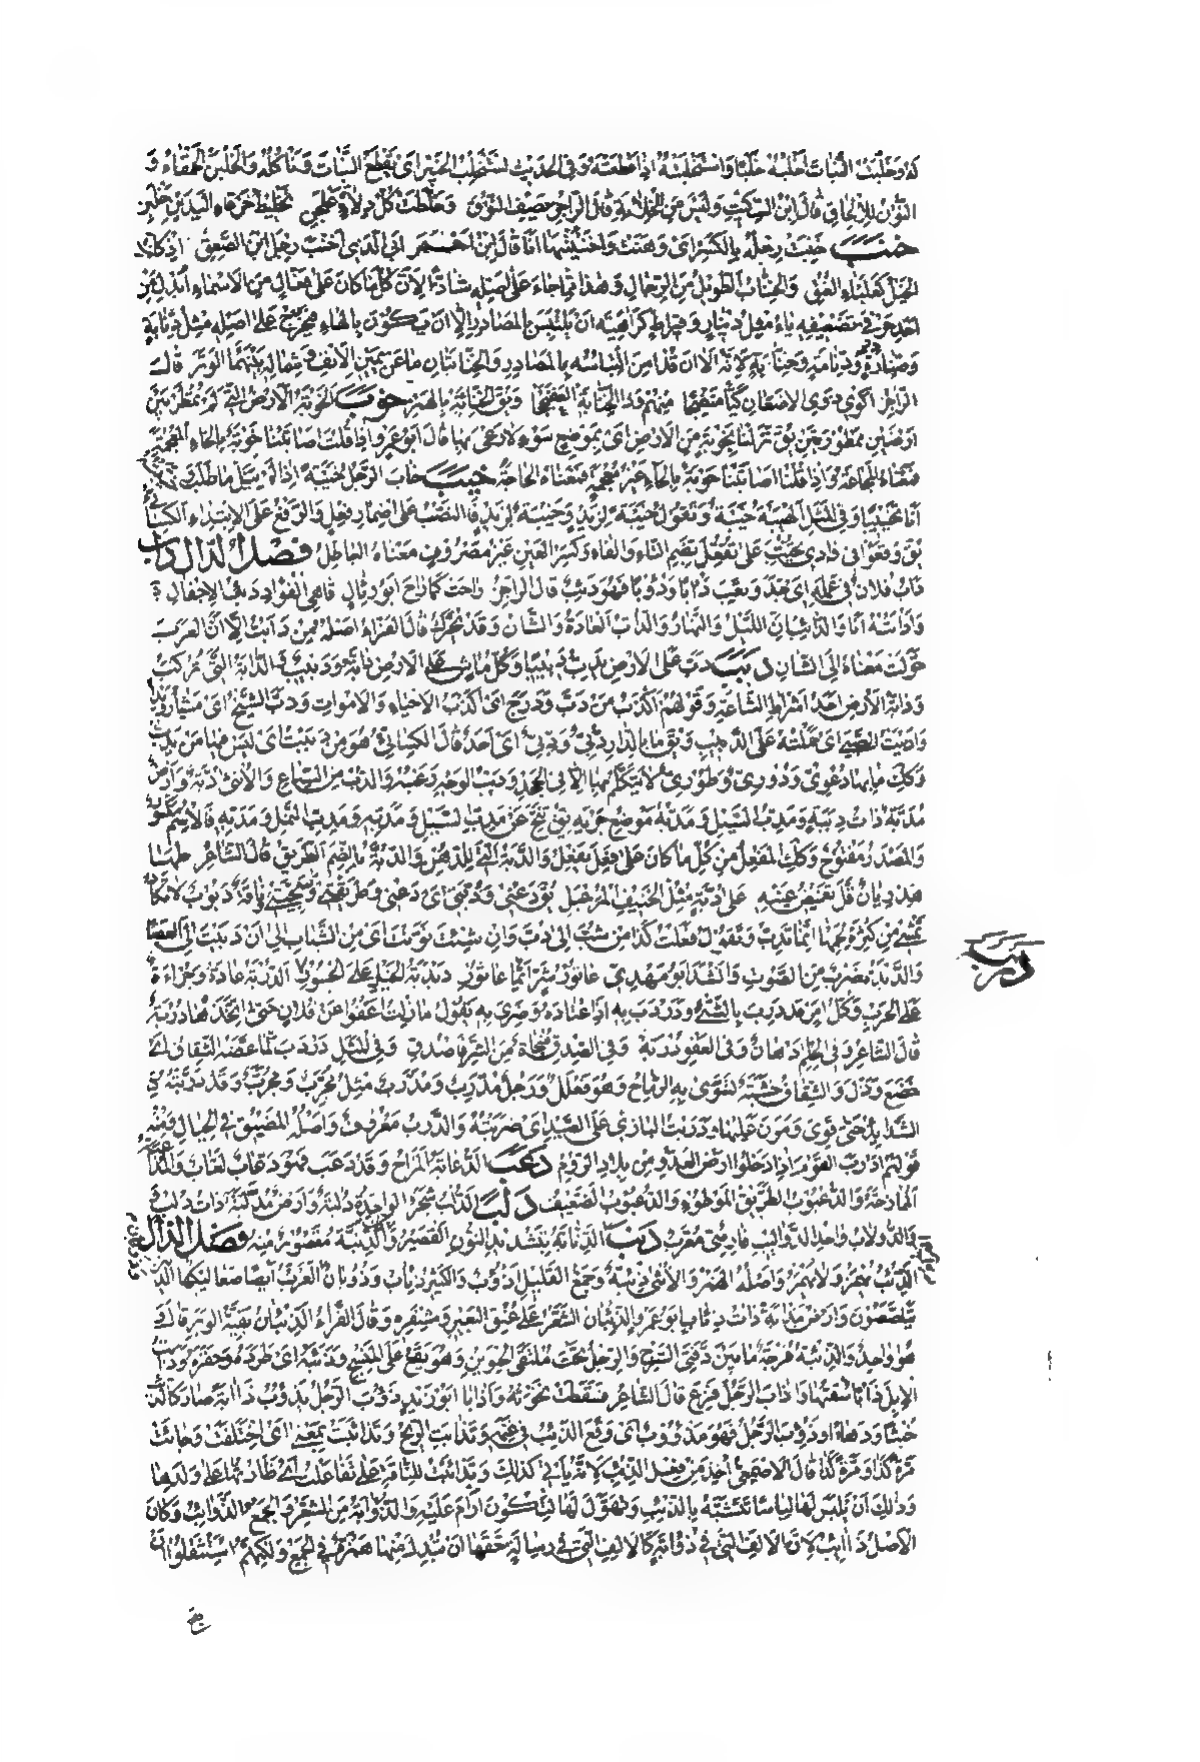 له وخلبت النبات اخلبه خلبا واستخلبته اذا قطعته وفي الحديث نستخلب الخبير اى نقطع النبات وناكله والخلبن الحمقاء و
النون للالحاق قال ابن السكيت وليس من الخلابة قال الراجز يصف النوق وخلطت كل دلاث علجن تخليط خرقاء اليدين خلبن
خنب خنبت رجله بالكسر اى وهنت واخنبتها انا قال ابن احمر ابي الذي اخنب رجل ابن الصعق اذ كانت
الخيل كعلباء العنق والخناب الطويل من الرجال وهذا مما جاء على اصله شاذا لان كل ما كان على فعال من الاسماء ابدل من
احد حرفي تضعيفه ياء مثل دينار وقيراط كراهية ان يلتبس بالمصادر الا ان يكون بالهاء فيخرج على اصله مثل دنابة
وصنارة ودنامة وخنابة لانه الان قد امن التباسه بالمصادر والخنابتان ما عن يمين الانف وشماله بينهما الوترة قال
الراجز اكوي ذوى الاضغان كيا منضجا منهم وذا الخنابة العفنججا ويقال الخنابة بالهمز خوب الخوبة الارض التي لم تمطر بين
ارضين ممطورتين يق نزلنا بخوبة من الارض اى بموضع سوء لا رعى بها قال ابو عمرو اذا قلت اصابتنا خوبة بالخاء المعجمة
فمعناه المجاعة واذا قلنا اصابتنا حوبة بالحاء غير معجمة فمعناه الحاجة خيب خاب الرجل خيبة اذا لم ينل ما طلب
انا تخييبا وفي المثل الهيبة خيبة وتقول خيبة لزيد وخيبة لزيد فالنصب على اضمار فعل والرفع على الابتداء الكسائي
يق وقعوا في وادي تخيب على تفعل بضم التاء والفاء وكسر العين غير مصروف معناه الباطل فصل الدال داب
داب فلان في عمله اى جد وتعب دابا ودؤوبا فهو دئب قال الراجز راحت كما راح ابو رئال قاهي الفؤاد دئب الاجفال
وادابته انا والدائبان الليل والنهار والداب العادة والشان وقد يحرك قال الفراء اصله من دابت الا ان العرب
حولت معناه الى الشان دبب دب على الارض يدب دبيبا وكل ماش على الارض دابة ودبيب والدابة التي تركب
ودابة الارض احد اشراط الساعة وقولهم اكذب من دب ودرج اى اكذب الاحياء والاموات ودب الشيخ اى مشى رويدا
وادببت الصبى اى حملته على الدبيب ويق ما بالدار دبي ودبي اى احد قال الكسائي هو من دببت اى ليس فيها من يدب
وكذلك ما بها دعوي ودوري وطوري لا يتكلم بها الا في الجحد ودبب الوجه زغبه والدب من السباع والانثى دبة وارض
مدبة ذات دببة ومدب السيل ومدبه موضع جريه يق تنح عن مدب السيل ومدبه ومدب النمل ومدبه فالاسم مكسور
والمصدر مفتوح وكذلك المفعل من كل ما كان على فعل يفعل والدبة التي للدهن والدبة بالضم الطريق قال الشاعر طها
هذريان قل تغميض عينه على دبة مثل الخنيف المرعبل يق دعني ودبتي اى دعني وطريقتي وسجيتي وناقة دبوب لا تكاد
تمشي من كثرة لحمها انما تدب وتقول فعلت كذا من شب الى دب وان شئت نونت اى من الشباب الى ان دببت على العصا
والدبدبة ضرب من الصوت وانشد ابو مهدي عاثور شر ايما عاثور دبدبة الخيل على الجسور الدربة عادة وجراءة
على الحرب وكل امر قد درب بالشئ ودردب به اذا اعتاده وضري به يقول ما زلت اعفو عن فلان حتى اتخذها دربة
قال الشاعر وفي الحلم ادهان وفي العفو دربة وفي الصدق منجاة من الشر فاصدق وفي المثل دردب لما عضه الثقاف اى
خضع وذل والثقاف خشبة تسوى بها الرماح وهو فعلل ورجل مدرب ومدرب مثل مجرب ومجرب وقد دربته
الشدائد حتى قوى ومرن عليها ودربت البازي على الصيد اى ضريته والدرب معروف واصله المضيق في الجبال ومنه
قولهم ادرب القوم اذا دخلوا ارض العدو من بلاد الروم دعب الدعابة المزاح وقد دعب فهو دعاب لعاب والمداعبة
الممازحة والدعبوب الطريق الموطوء والدعبوب الضعيف دلب الدلب شجر الواحدة دلبة وارض مدلبة ذات دلب
والدولاب واحد الدواليب فارسي معرب دنب الدنابة بتشديد النون القصير والدنبة مقصور منه فصل الذال
الذئب يهمز ولا يهمز واصله الهمز والانثى ذئبة وجمع القليل اذؤب والكثير ذئاب وذؤبان وذؤبان العرب ايضا صعاليكها الذين
يتلصصون وارض مذابة ذات ذئاب ابو عمرو الذئبان الشعر على عنق البعير ومشفره وقال الفراء الذئبان بقية الوبر قال
هو واحد والذئبة فرجة ما بين دفتى السرج والرحل تحت ملتقى الحنوين وهو يقع على المنسج وذابه اى طرده وحقره وذابت
الابل ذابا سقتها واذاب الرجل فزع قال الشاعر فسقطت نخوته واذابا ابو زيد ذؤب الرجل يذؤب ذابة صار كالذئب
خبثا ودهاء وذئب الرجل فهو مذؤوب اى وقع الذئب في غنمه وتذابت الريح وتذاءبت بمعنى اى اختلفت وجاءت
مرة كذا ومرة كذا قال الاصمعي اخذ من فعل الذئب لانه ياتي كذلك وتذاءبت للناقة على تفاعلت اى ظارتها على ولدها
وذلك ان تلبس لها لباسا تتشبه بالذئب وتهول لها لتكون ارأم عليه والذؤابة من الشعر والجمع الذوائب وكان
الاصل ذاائب لان الالف التي في ذؤابة كالالف التي في رسالة حقها ان تبدل منها همزة في الجمع ولكنهم استثقلوا ان
درب